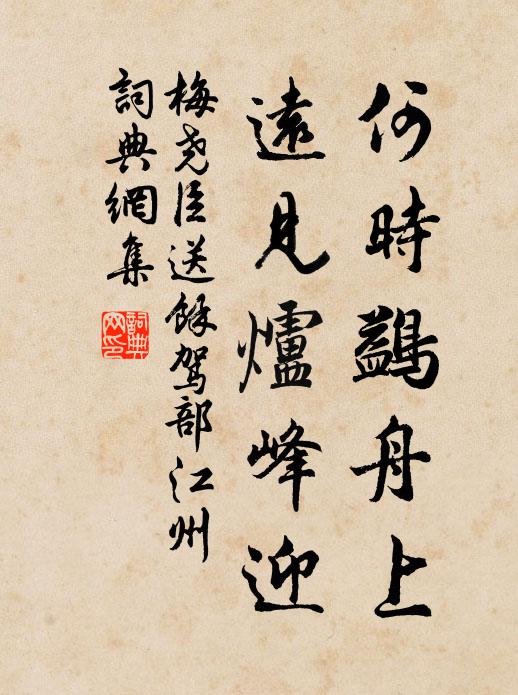 何時鷁舟上
遠見爐峰迎
梅尧臣送馀駕部江州
詞典網集
詞典网印